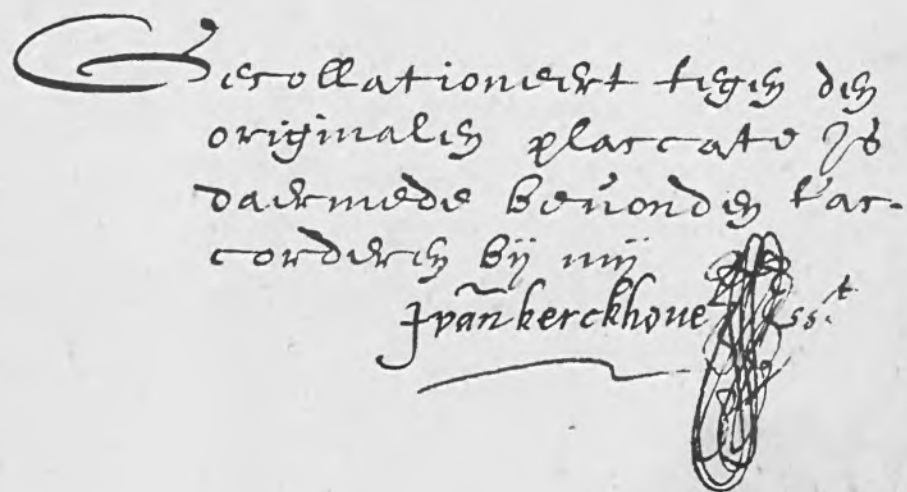 Gecollationneert tegen den
originalen placcate Is
daermede bevonden t'ac-
corderen bij mij
J vañ kerckhoue ss.t